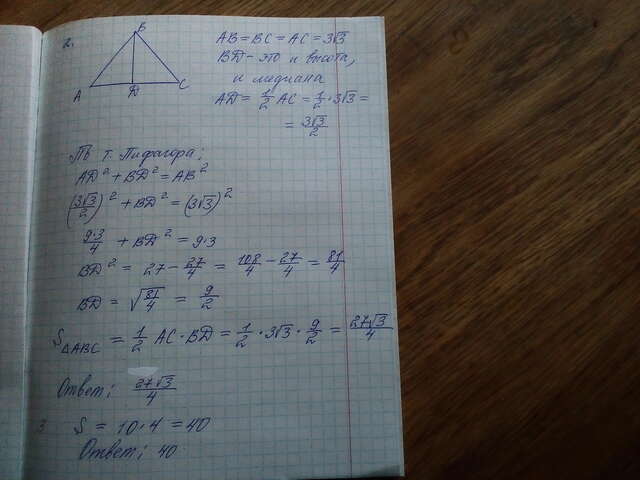 2.
B
A D C
AB = BC = AC = 3√3
BD - это и высота,
и медиана
AD = 1/2 AC = 1/2 · 3√3 =
= 3√3/2
По т. Пифагора:
AD² + BD² = AB²
(3√3/2)² + BD² = (3√3)²
9·3/4 + BD² = 9·3
BD² = 27 - 27/4 = 108/4 - 27/4 = 81/4
BD = √81/4 = 9/2
S△ABC = 1/2 AC · BD = 1/2 · 3√3 · 9/2 = 27√3/4
Ответ: 27√3/4
3 S = 10·4 = 40
Ответ: 40